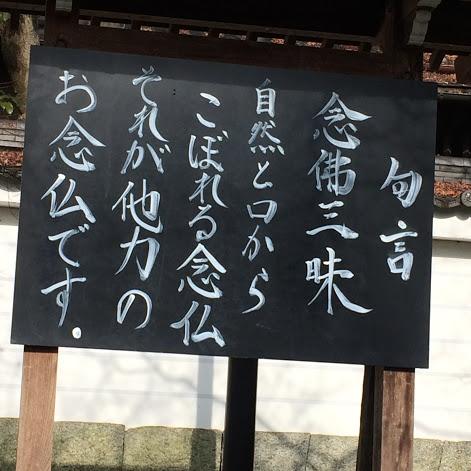 句言
念佛三昧
自然と口から
こぼれる念仏
それが他力の
お念仏です.